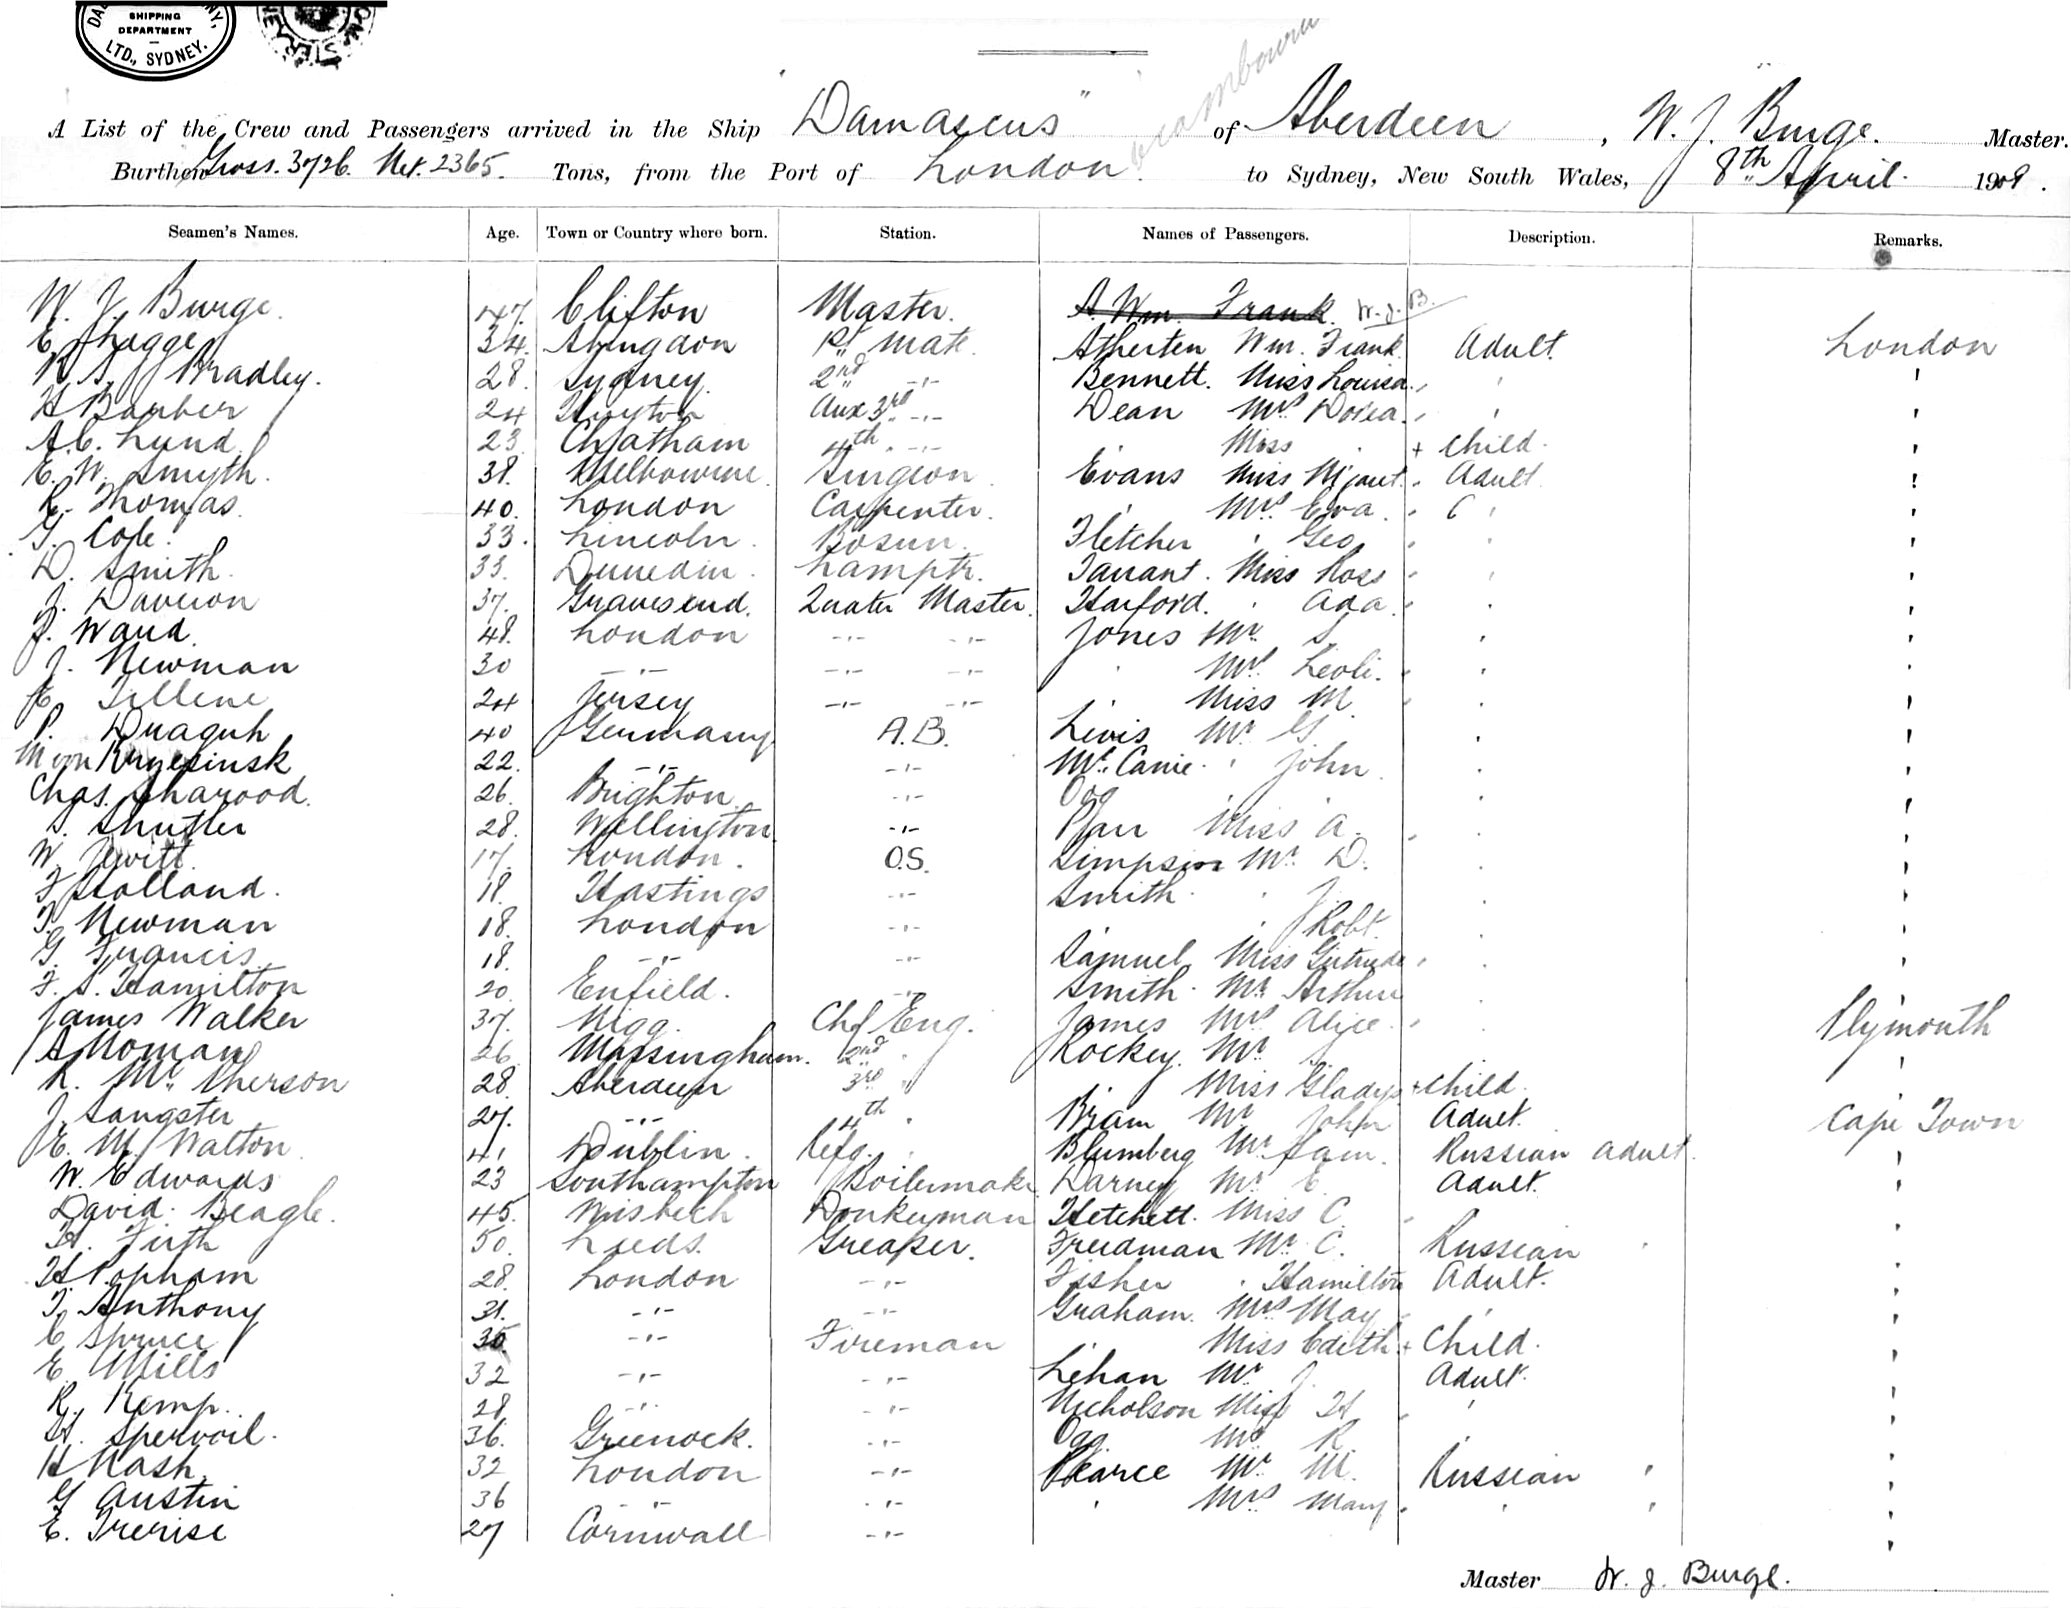 SHIPPING
DEPARTMENT
LTD., SYDNEY.
A List of the Crew and Passengers arrived in the Ship "Damascus" of Aberdeen, W. J. Burge. Master.
Burthen Gross. 3726. Net. 2365. Tons, from the Port of London. to Sydney, New South Wales, 8th April. 1908.
Seamen's Names. Age. Town or Country where born. Station. Names of Passengers. Description. Remarks.
W. J. Burge. 47. Clifton Master. A. Wm. Frank. W.J.B.
34. Abingdon 1st Mate. Atherten Wm. Frank. Adult. London
Bradley. 28. Sydney. 2nd -"- Bennett. Miss Louisa. "
H Barber 24 Huyton Aux 3rd -"- Dean Mrs Dorea. "
A.C. Lund. 23. Chatham 4th -"- Miss + Child.
E. W. Smyth. 38. Melbourne. Surgeon Evans Miss Mgaret. Adult.
R. Thomas. 40. London Carpenter. " Mrs Eva.
G. Cole. 33. Lincoln. Bosun. Fletcher " Geo
D. Smith. 33. Dunedin. Lamptr. Tarrant. Miss Rose
J. Daveron 37. Gravesend. Quater Master. Harford. " Ada.
J. Ward. 48. London -"- -"- Jones Mr. S.
J. Newman 30 -"- -"- -"- " Mrs. Leoli.
E. Tillene 24 Jersey -"- -"- Miss M
P. Duaguh 40 Germany A.B. Livis Mr G
M von 22. -"- -"- Mc.Canie. " John.
Chas. Sharood. 26. Brighton. -"- Ogg
S. Shutler 28. Wellington -"- Miss A.
W. Jewitt. 17. London. O.S. Simpson Mr. D.
F Holland. 18. Hastings -"- Smith " J.
T. Newman 18. London -"- " Robt.
G. Francis. 18. -"- -"- Samuel Miss Girtrude
F. S. Hamilton 20. Enfield. -"- Smith. Mr. Arthur
James Walker 37. Nigg. Chf Eng. James Mrs Alice. Plymouth
A Moman 26. Massingham. 2nd " Rockey. Mr.
R. McPherson 28. Aberdeen 3rd " Miss Gladys + Child.
J. Sangster 27. -"- 4th " Mr John Adult. Cape Town
E. M. Walton. 41 Dublin. Refg. " Blumberg Mr. Sam. Russian Adult.
W. Edwards 23 Southampton Boilermaker Darney Mr E. Adult.
David. Beagle. 45. Wisbech Donkeyman Hetchett. Miss C.
H. Firth 50. Leeds. Greaser. Freedman Mr. C. Russian "
H Popham 28. London -"- Fisher " Hamilton Adult.
T. Anthony 31. -"- -"- Graham. Mrs May
C Spruce 35. -"- Fireman Miss Edith + Child.
E. Mills 32 -"- -"- Lehan Mr. J. Adult.
R. Kemp. 28 -"- -"- Nicholson Miss H
H. Spervoil. 36. Greenock. -"- Ogg. Mr R
H Nash. 32 London -"- Pearce Mr. M. Russian "
G Austin 36 -"- -"- " Mrs Mary. " "
E. Trerise 27 Cornwall -"-
Master W. J. Burge.